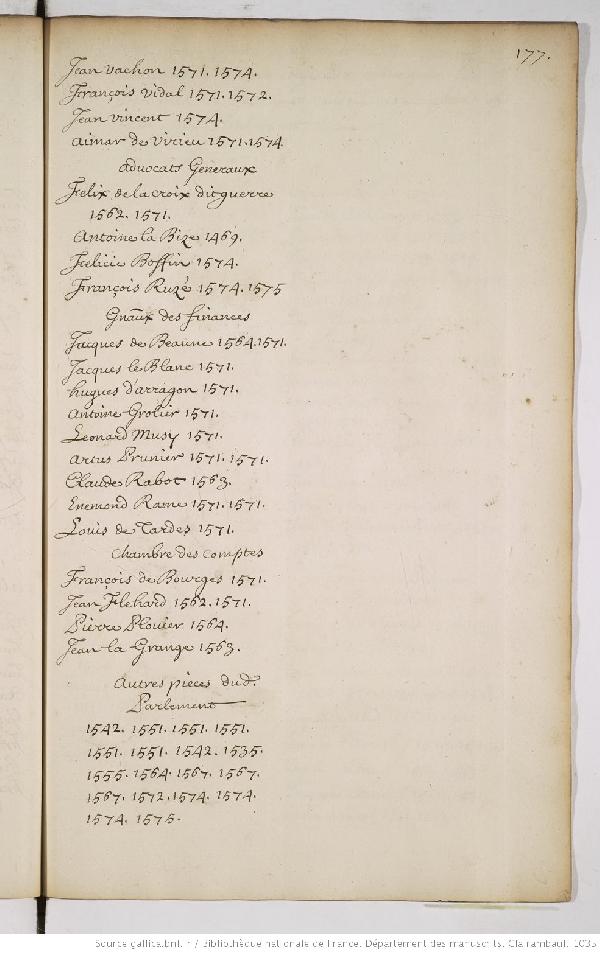 177.
Jean Vachon 1571. 1574.
François Vidal 1571. 1572.
Jean Vincent 1574.
Aimar de Virieu 1571. 1574
Advocats Generaux
Felix de la croix dit guerre
1562. 1571.
Antoine la Bize 1469.
Felicie Boffin 1574.
François Ruzé 1574. 1575
Gñaux des finances
Jacques de Beaune 1564. 1571.
Jacques le Blanc 1571.
hugues d'arragon 1571.
Antoine Grolier 1571.
Leonard Musy 1571.
Artus Prunier 1571. 1571.
Claude Rabot 1563.
Enemond Rame 1571. 1571.
Louis de Tardes 1571.
Chambre des Comptes
François de Bourges 1571.
Jean Flehard 1562. 1571.
Pierre Plouier 1564.
Jean la Grange 1563.
Autres pieces dud.
Parlement
1542. 1551. 1551. 1551.
1551. 1551. 1542. 1535.
1555. 1564. 1567. 1567.
1567. 1572. 1574. 1574.
1574. 1575.
Source gallica.bnf.fr / Bibliothèque nationale de France. Département des manuscrits. Clairambault 1035